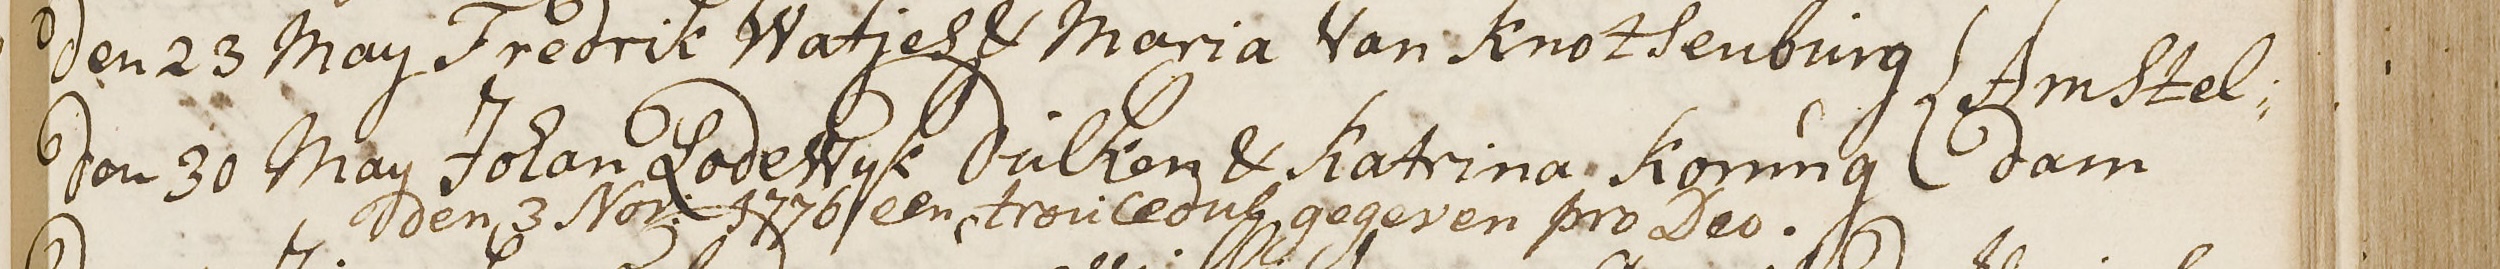 den 23 May Fredrik Watjes & Maria Van Knotsenburg
Amstel:
den 30 May Johan Lodewyk Dulken & Katrina Koning
dam
den 3 Nov: 1776 een trouicedul gegeven pro Deo.